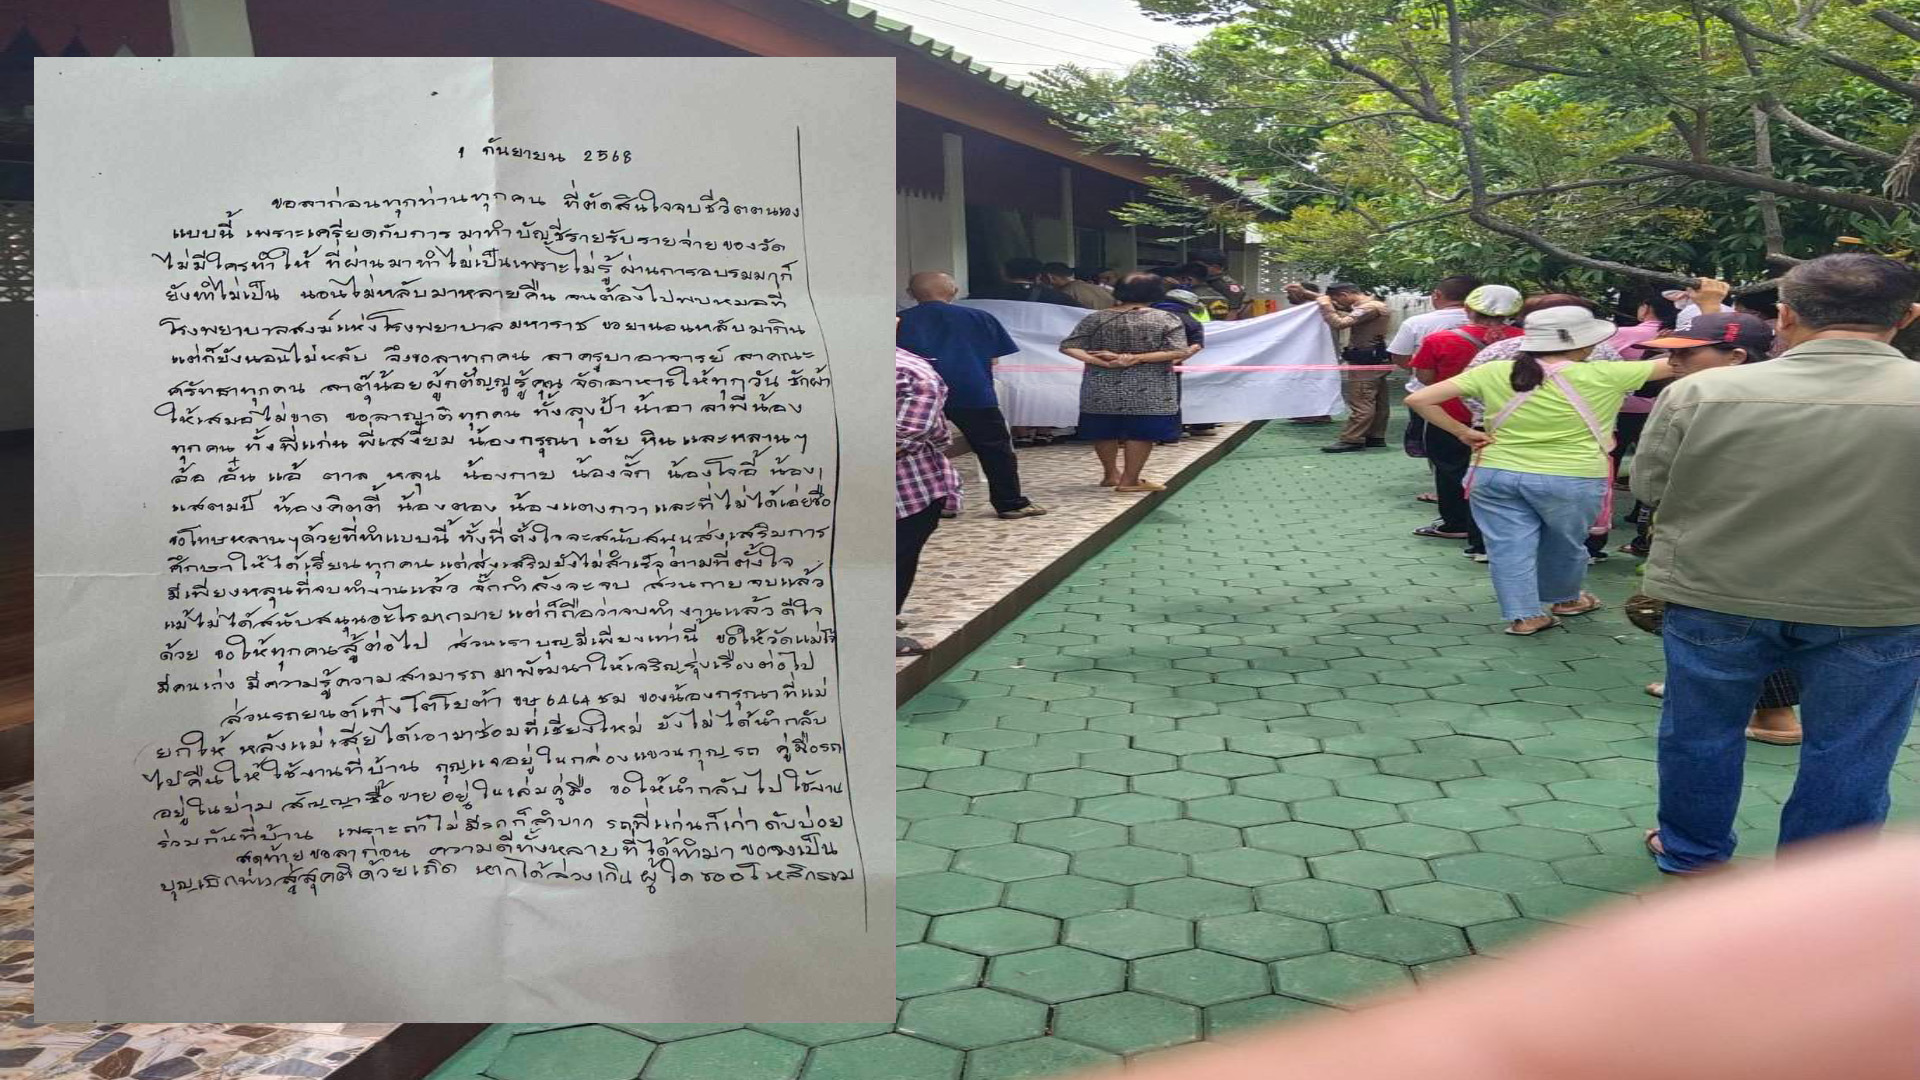 1 กันยายน 2568
ขอลาก่อนทุกท่านทุกคน ที่ตัดสินใจจบชีวิตตนเอง
แบบนี้ เพราะเครียดกับการมาทำบัญชีรายรับรายจ่ายของวัด
ไม่มีใครทำให้ ที่ผ่านมาทำไม่เป็นเพราะไม่รู้ ผ่านการอบรมมาก็
ยังทำไม่เป็น นอนไม่หลับมาหลายคืน จนต้องไปพบหมอที่
โรงพยาบาลสงฆ์แห่งโรงพยาบาลมหาราช ขอยานอนหลับมากิน
แต่ก็ยังนอนไม่หลับ จึงขอลาทุกคน ลาครูบาอาจารย์ ลาคณะ
ศรัทธาทุกคน ลาตุ๊น้อยผู้กตัญญูรู้คุณ จัดอาหารให้ทุกวัน ซักผ้า
ให้เสมอไม่ขาด ขอลาญาติทุกคน ทั้งลุงป้า น้าอา ลาพี่น้อง
ทุกคน ทั้งพี่แก่น พี่เสงี่ยม น้องกรุณา เต้ย หิน และหลานๆ
อ้อ อั๋น แอ้ ตาล หลุน น้องกาย น้องจั๊ก น้องไจอี้ น้อง
แสตมป์ น้องคิตตี้ น้องตอง น้องแตงกวา และที่ไม่ได้เอ่ยชื่อ
ขอโทษหลานๆด้วยที่ทำแบบนี้ ทั้งที่ตั้งใจจะสนับสนุนส่งเสริมการ
ศึกษาให้ได้เรียนทุกคน แต่ส่งเสริมยังไม่สำเร็จตามที่ตั้งใจ
มีเพียงหลุนที่จบทำงานแล้ว จั๊กกำลังจะจบ ส่วนกายจบแล้ว
แม้ไม่ได้สนับสนุนอะไรมากมาย แต่ก็ถือว่าจบทำงานแล้ว ดีใจ
ด้วย ขอให้ทุกคนสู้ต่อไป ส่วนเราบุญมีเพียงเท่านี้ ขอให้วัดแม่โจ้
มีคนเก่ง มีความรู้ความสามารถมาพัฒนาให้เจริญรุ่งเรืองต่อไป
ส่วนรถยนต์เก๋งโตโยต้า ขษ 6464 ชม ของน้องกรุณาที่แม่
ยกให้ หลังแม่เสียได้เอามาซ่อมที่เชียงใหม่ ยังไม่ได้นำกลับ
ไปคืนให้ใช้งานที่บ้าน กุญแจอยู่ในกล่องแขวนกุญรถ คู่มือรถ
อยู่ในย่าม สัญญาซื้อขายอยู่ในเล่มคู่มือ ขอให้นำกลับไปใช้งาน
ร่วมกันที่บ้าน เพราะถ้าไม่มีรถก็ลำบาก รถพี่แก่นก็เก่าดับบ่อย
สุดท้ายขอลาก่อน ความดีทั้งหลายที่ได้ทำมา ขอจงเป็น
สู่สุคติด้วยเถิด หากได้ล่วงเกินผู้ใด ขออโหสิกรรม